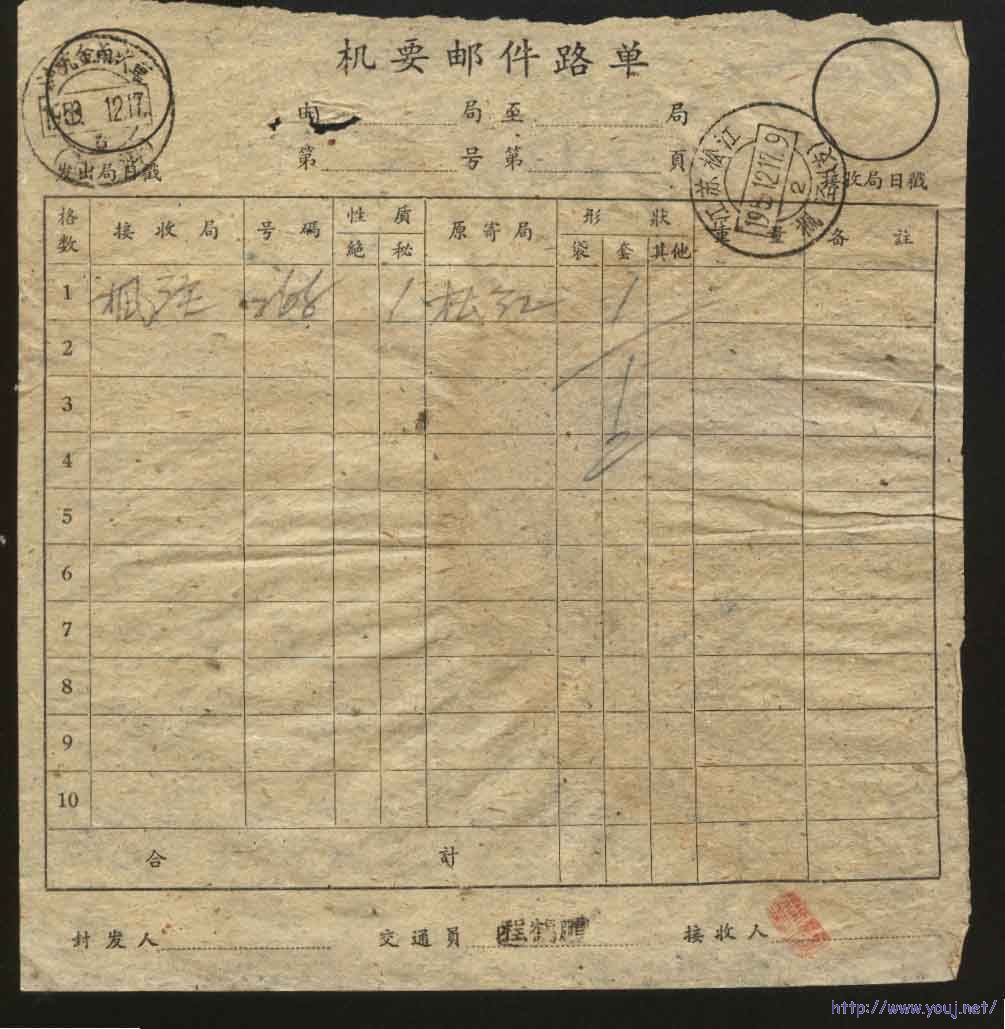 机要邮件路单
由 局至 局
第 号第 頁
发出局日戳
接收局日戳
12.17.
江苏松江
195 12.17.9
2
格数 接收局 号码 性质 原寄局 形状 重量 备註
絕 秘 袋 套 其他
1 枫泾 268 1 松江 1
2
3
4
5
6
7
8
9
10
合 計
封发人 交通員 程鹤鵬 接收人
http://www.youj.net/